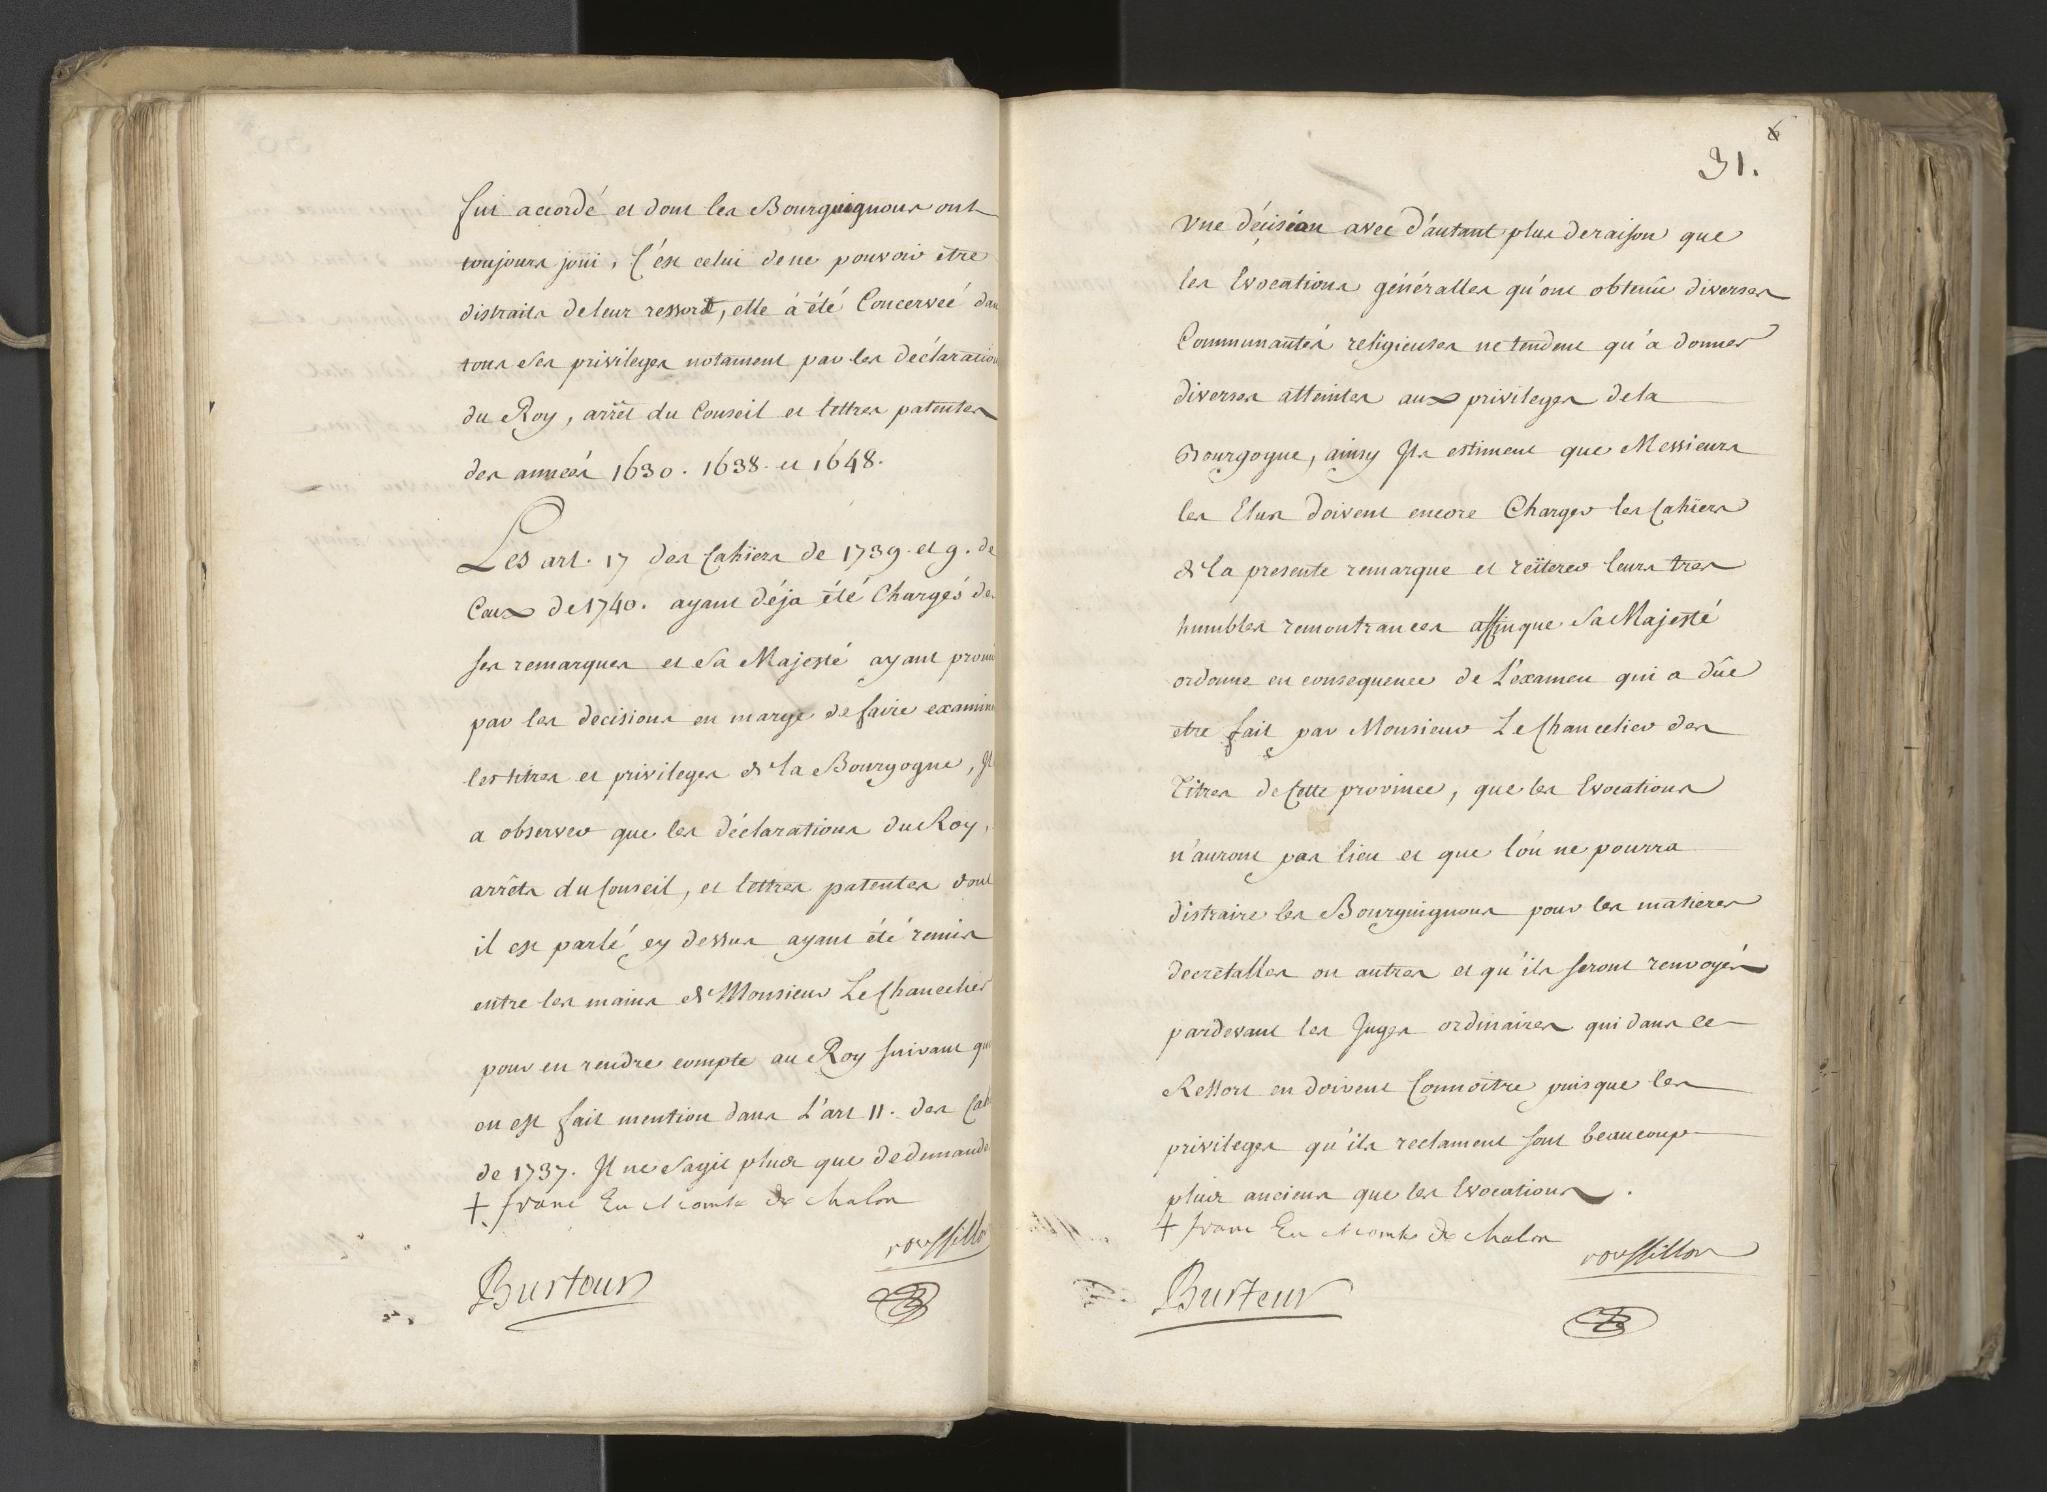 fut accordé et dont les Bourguignons ont
toujours joui, C'est celui de ne pouvoir etre
distraits de leur ressort, elle à été Concervéé dan
tous ses privileges notament par les déclaration
du Roy, arrêt du Conseil et lettres patentes
des années 1630. 1638. et 1648.
Les art. 17 des Cahiers de 1739. et 9. de
Ceux de 1740. ayant déja été Chargés de
ses remarques et Sa Majesté ayant promi
par les decisions en marge de faire examine
les titres et privileges de la Bourgogne, Jl
a observer que les déclarations du Roy,
arrêts du Conseil, et lettres patentes dont
il est parlé cy dessus ayant été remis
entre les mains de Monsieur Le Chancelier
pour en rendre compte au Roy suivant qu
en est fait mention dans L'art 11. des Cah
de 1737. Jl ne S'agit plus que de demande
+ franc En M comte de Chalon
roussillo
Burteur
6
31.
Vne décision avec d'autant plus de raison que
les Evocations généralles qu'ont obtenû diverses
Communautés religieuses ne tendent qu'à donner
diverses atteintes aux privileges de la
Bourgogne, ainsy Jls estiment que Messieurs
les Elus doivent encore Charger les Cahiers
de la presente remarque et réïterer leurs tres
humbles remontrances affinque Sa Majesté
ordonne en consequence de L'examen qui a dûe
etre fait par Monsieur Le Chancelier des
Titres de Cette province, que les Evocations
n'auront pas lieu et que l'on ne pourra
distraire les Bourguignons pour les matieres
decretalles ou autres et qu'ils seront renvoyés
pardevant les Juges ordinaires qui dans ce
Ressort en doivent Connoitre puisque les
privileges qu'ils reclament sont beaucoup
plus anciens que les Evocations.
+ franc En M comte de Chalon
roussillon
Burteur